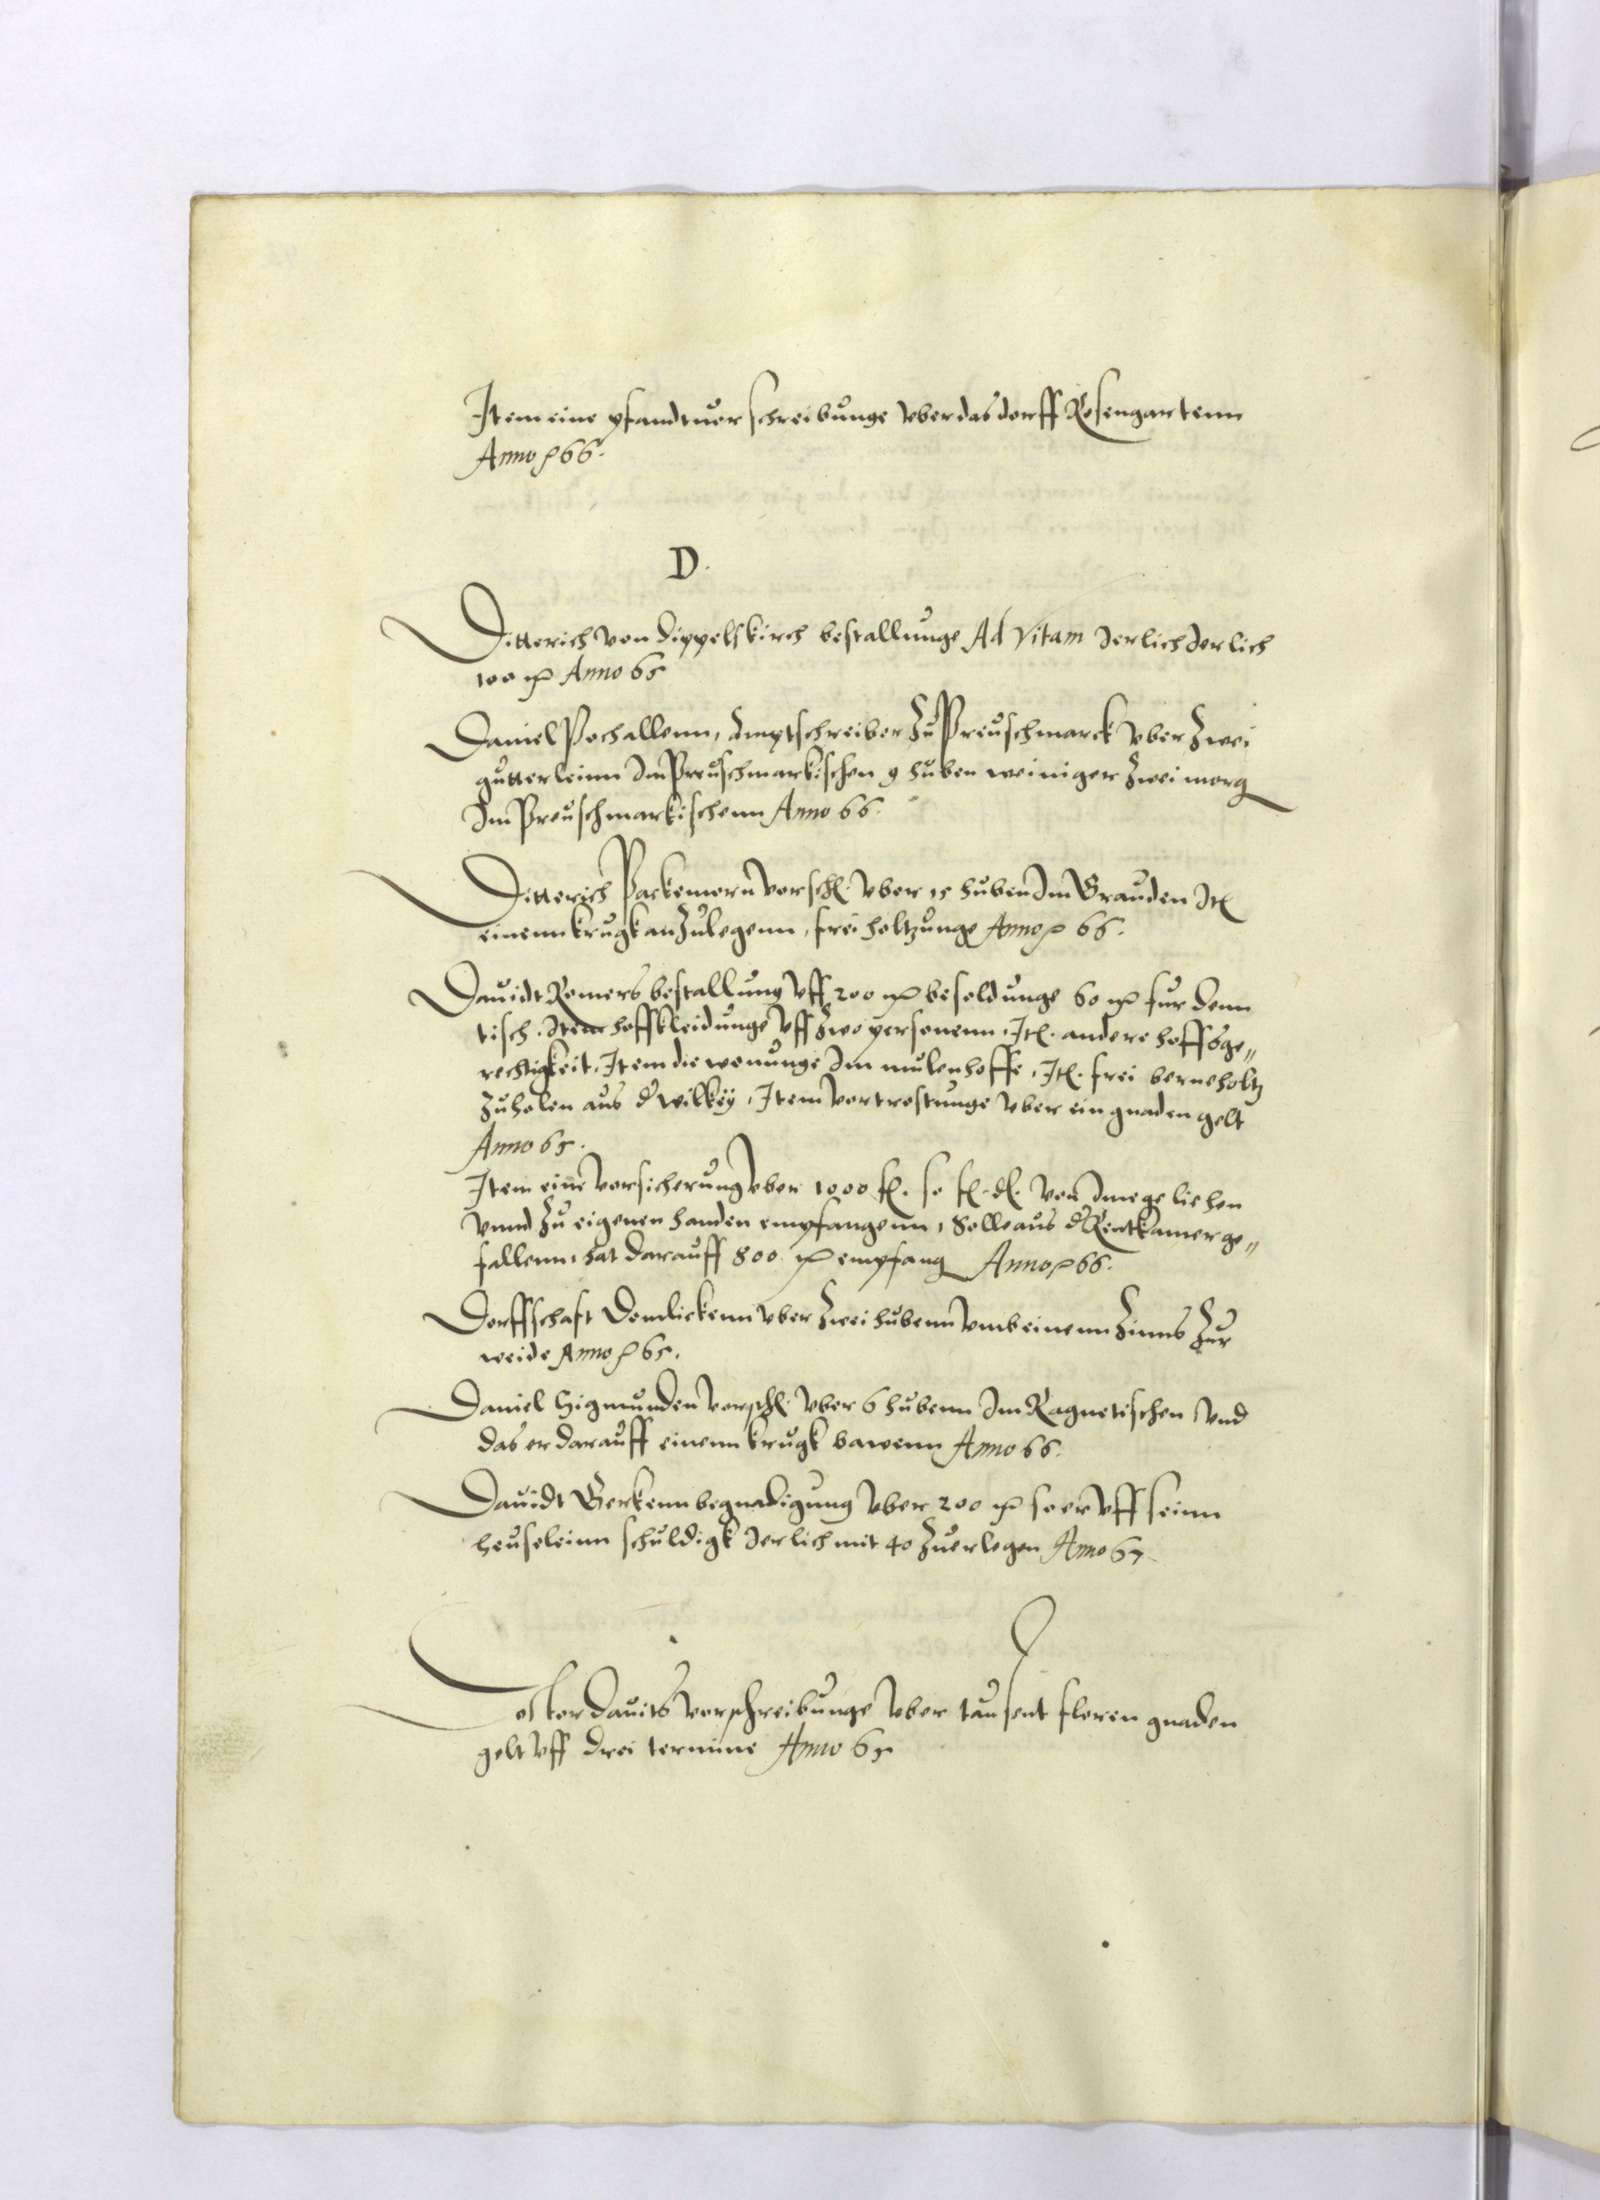 Item eine pfandtuerschreibunge vber das dorff Rosengartenn
Anno p 66.
D.
Ditterich von Dippelskirch bestallunge Ad Vitam Jerlich Jerlich
100 mk Anno 65
Daniel Pochallenn, Amptschreiber zu Preuschmarck vber zwei
gutterleinn Im Preuschmarkischen 9 huben weiniger zwei morg
Im Preuschmarkischenn Anno 66.
Ditterich Packemorn vorschl. vber 15 huben Im Grauden Itl
einenn krugk anzulegenn, frei holtzunge Anno p 66.
Dauidt Romers bestallung vff 200 mk besoldunge 60 mk fur denn
tisch. Item hoffkleidunge vff zwo personenn, Itl. andere hoffsge„
rechtigkeit, Item die wonunge Im mulenhoffe, Itl. frei berneholtz
zuholen aus d wilkey, Item vortrostunge vber ein gnaden gelt
Anno 65.
Item eine vorsicherung vber 1000 fl. so fl. dl. von Ime geliehen
vnnd zu eigenen handen empfangenn, Solle aus d Rentkamer ge„
fallenn, hat darauff 800 mk empfang Anno p 66.
Dorffschaft Domlickenn vber zwei hubenn vmb einenn Zinns zur
weide Anno p 65.
Daniel Sigmunden vorschl. vber 6 hubenn Im Ragnetischen vnd
das er darauff einenn krugk bawenn Anno 66.
Dauidt Gerkenn begnadigung vber 200 mk so er vff seinn
heuseleinn schuldigk Jerlich mit 40 zuerlegen Anno 67.
Doctor Dauits vorschreibunge vber tausent floren gnaden
gelt vff drei termine Anno 65